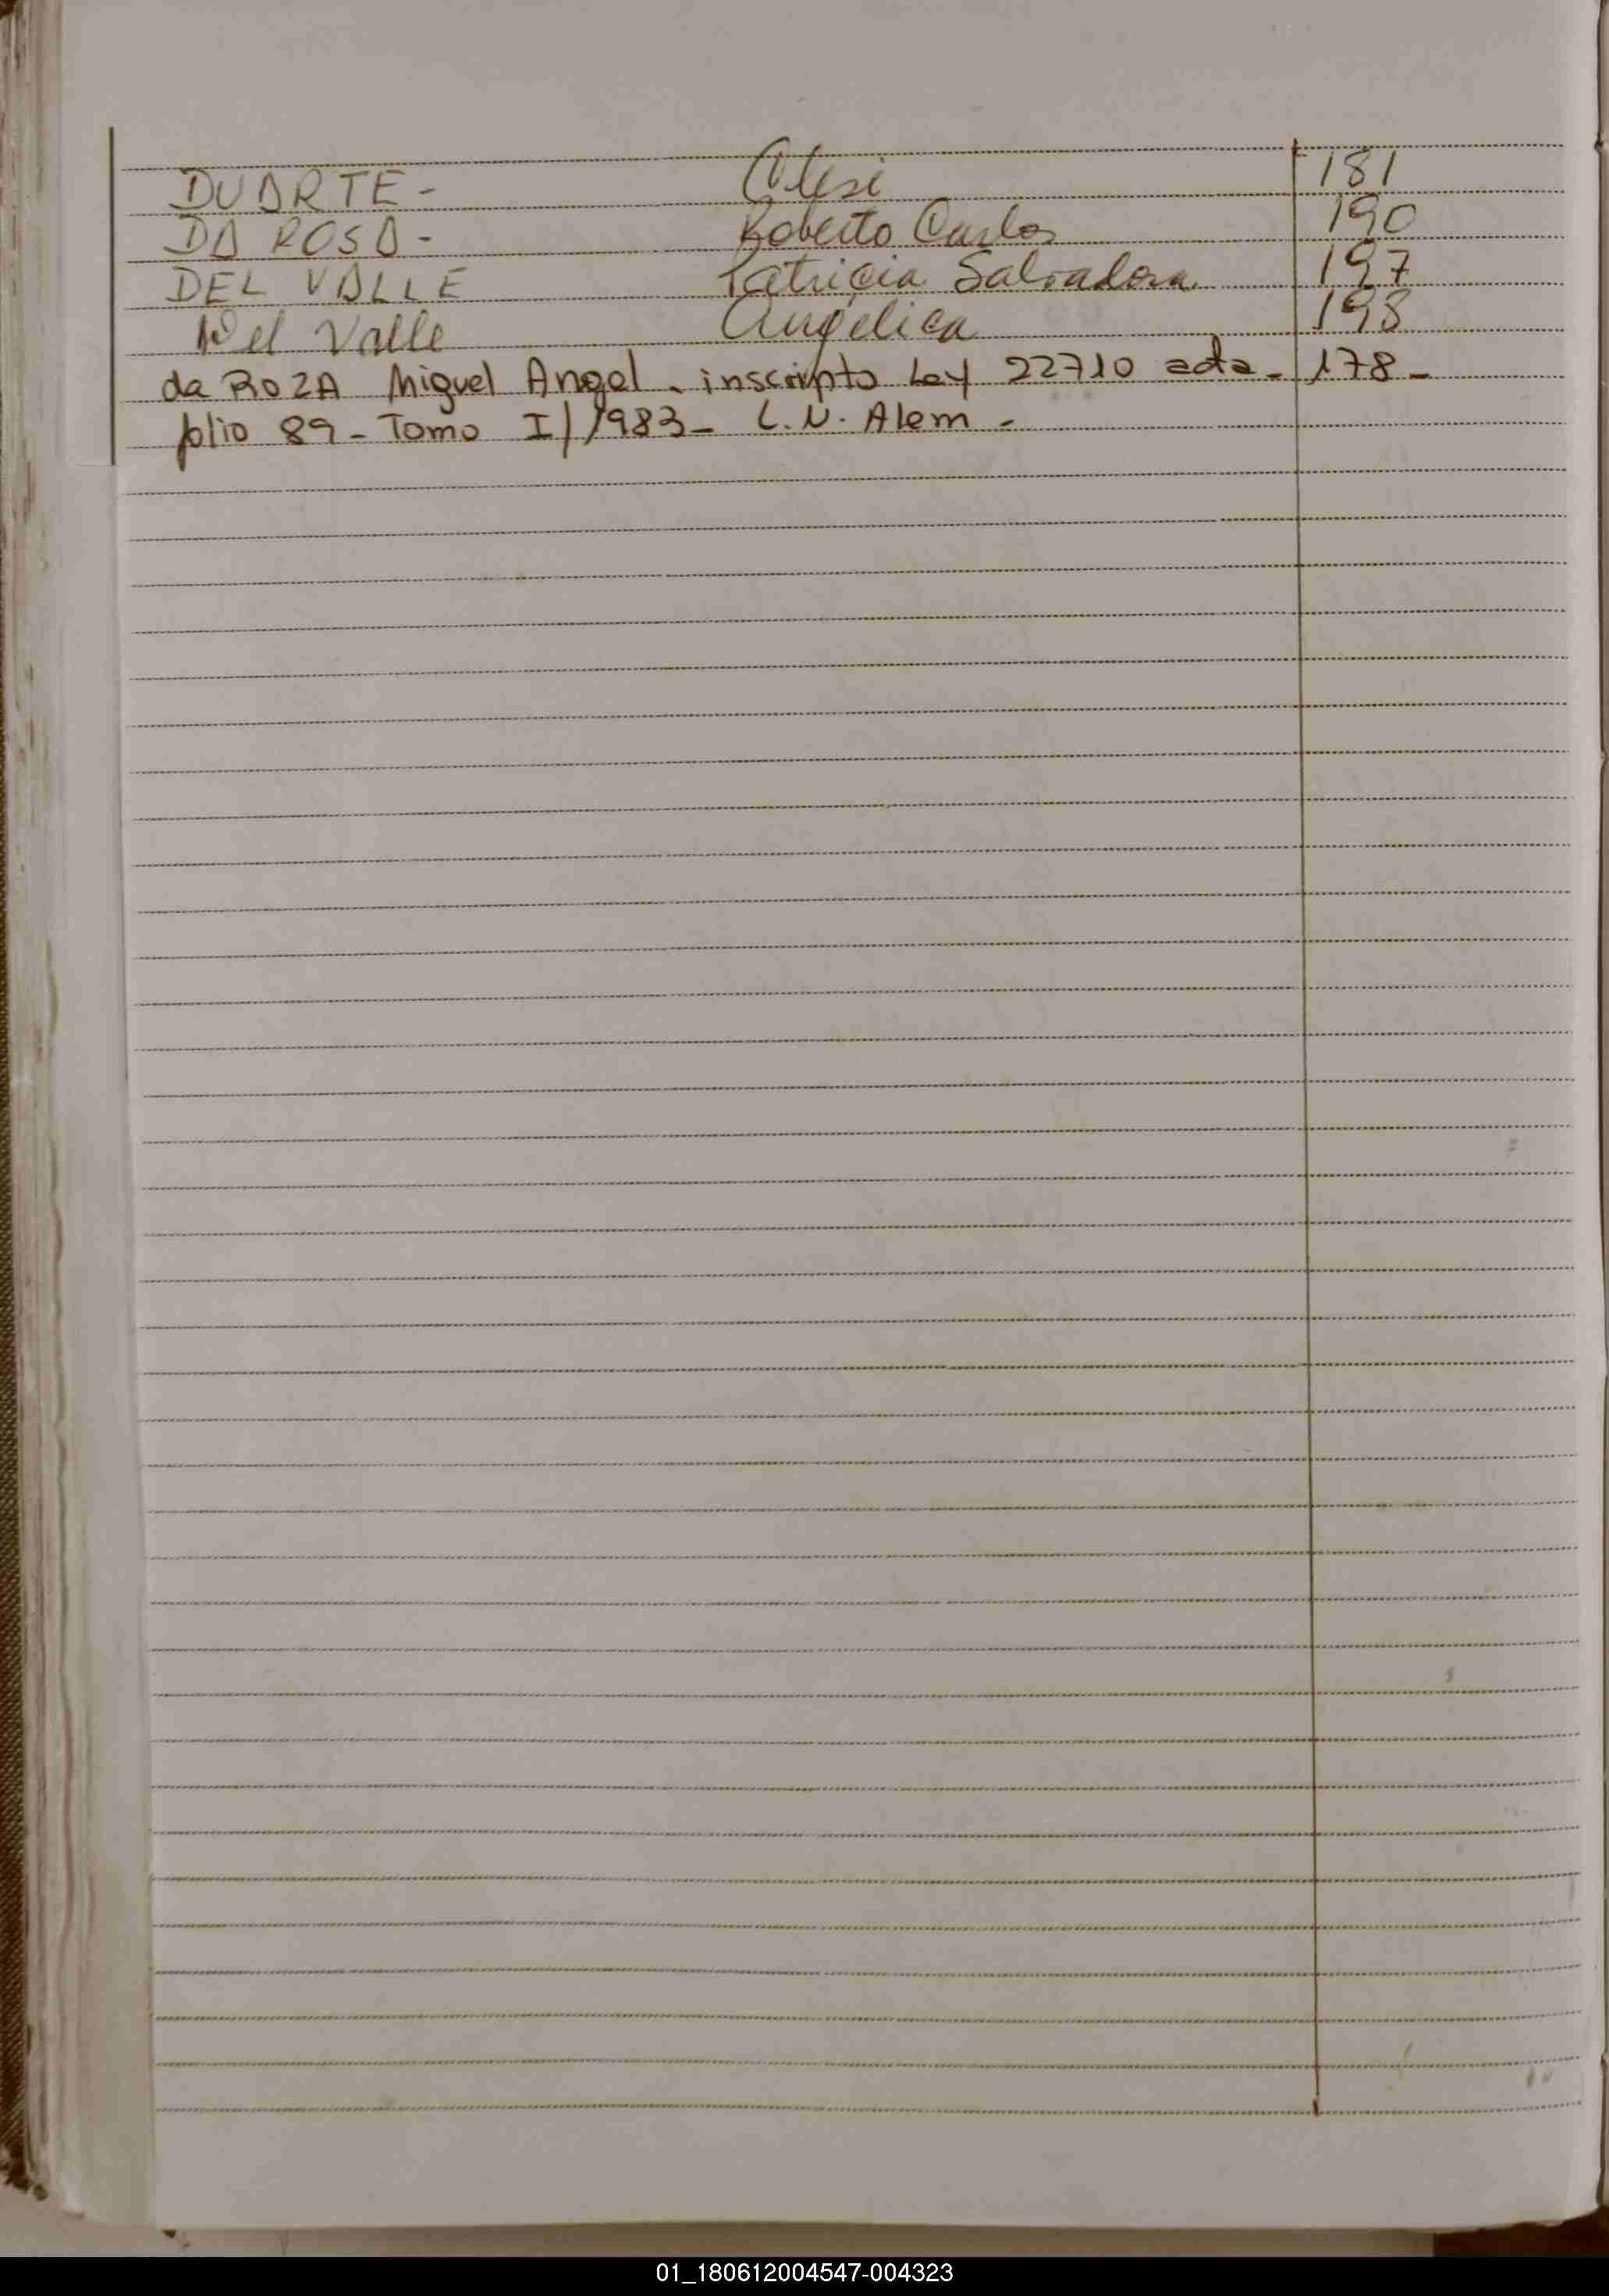 DUARTE - Olesi 181
DA ROSA - Roberto Carlos 190
DEL VALLE Patricia Salvadora 197
Del Valle Angélica 198
da ROZA Miguel Angel - inscripto Ley 22710 acta - 178 -
folio 89 - Tomo I/1983 - L.N. Alem -
01_180612004547-004323